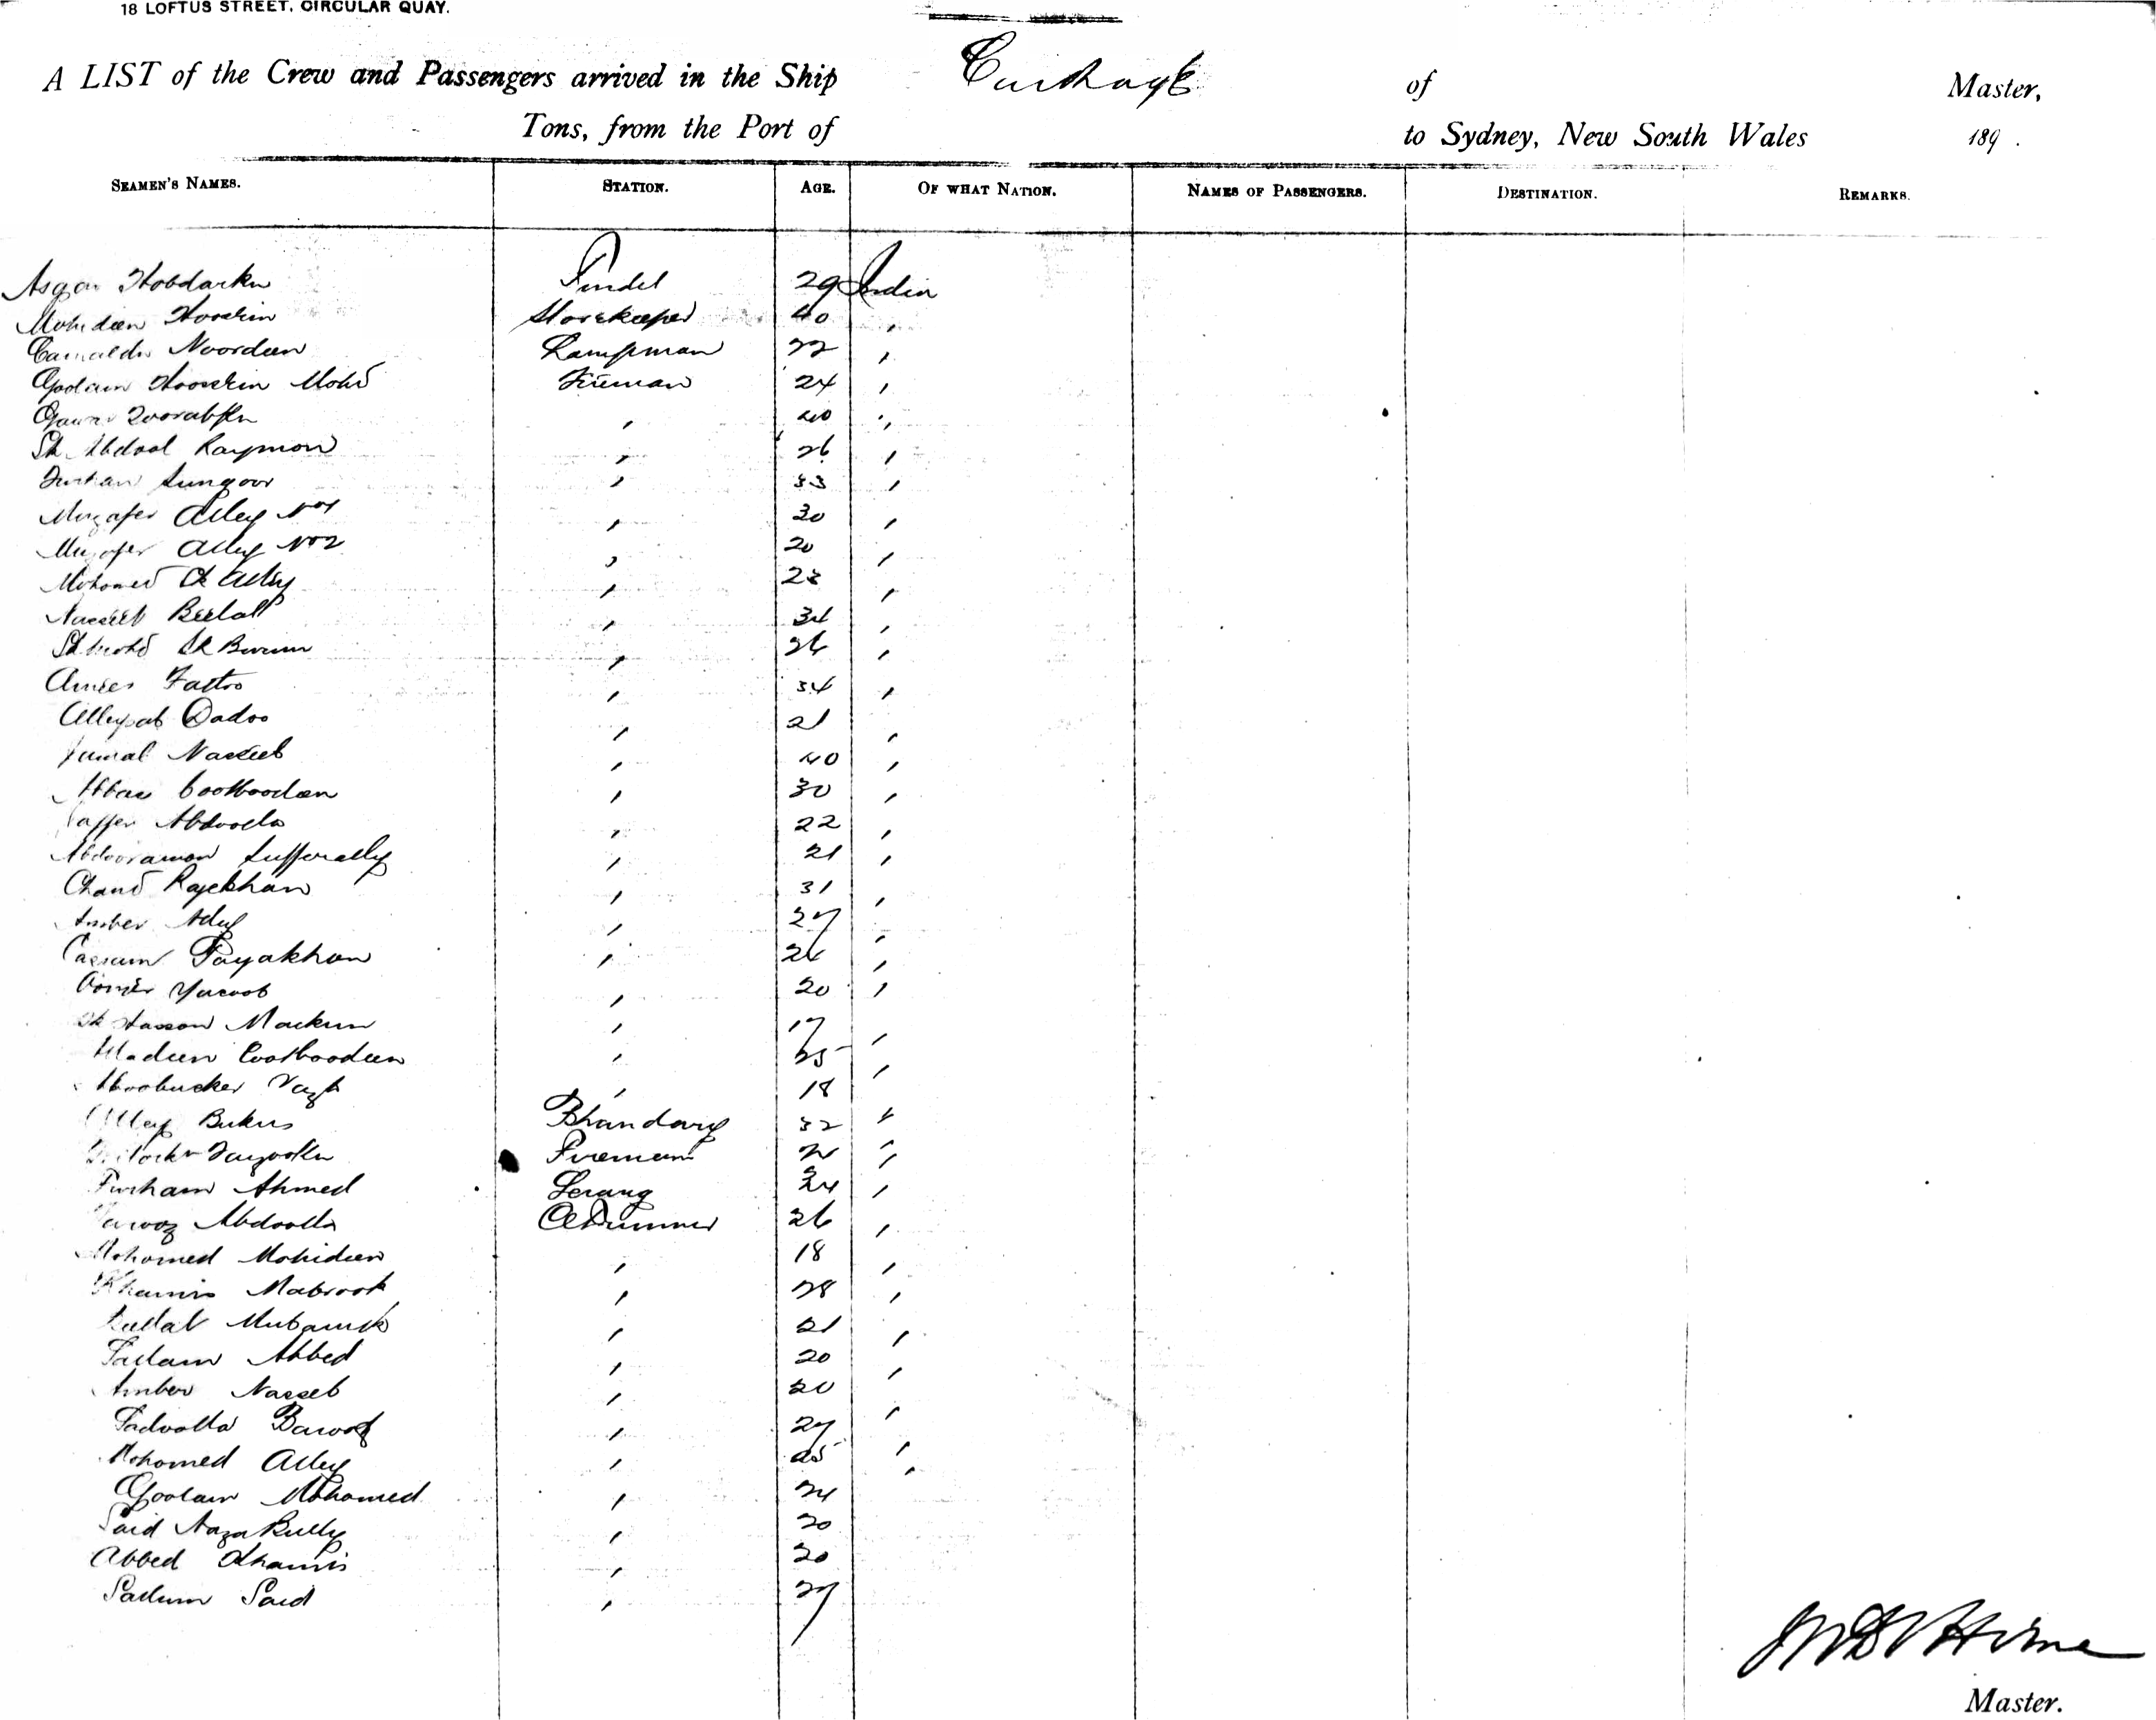 18 LOFTUS STREET, CIRCULAR QUAY.
A LIST of the Crew and Passengers arrived in the Ship Carthage of Master,
Tons, from the Port of to Sydney, New South Wales 189 .
SEAMEN'S NAMES. STATION. AGE. OF WHAT NATION. NAMES OF PASSENGERS. DESTINATION. REMARKS.
Asgar Tindel 29 India
Mohideen Hoosein Storekeeper 40 "
Noordeen Lampman 22 "
Goolam Hoosein Mohd Fireman 24 "
" 40 "
Sk Abdool Raymon " 26 "
Furhan Sungoor " 33 "
Muzafer Alley No1 " 30 "
Muzafer Alley No2 " 20 "
Mohomed Sk Alley " 23 "
Nusseeb Beelall " 34 "
Sk Mohd Sk Burim " 26 "
Fattoo " 34 "
Dadoo " 21 "
Jumal Naseeb " 40 "
Abbas Cootboodeen " 30 "
Jaffer Abdoolla " 22 "
Abdooramon Sufferally " 21 "
Chand Rajekhan " 31 "
Amber " 27 "
Cassum Payakhan " 26 "
Yacoob " 20 "
Sk Hasson Mackun " 17 "
Aladeen Cootboodeen " 25 "
Aboobucker " 18
Alley Bukus Bhandary 32 "
Fireman "
Furham Ahmed Serang 34 "
Farooz Abdoolla Trimmer 26 "
Mohomed Mohideen " 18 "
Khamis Mabrook " 28 "
Mubaruck " 21 "
Sallam Abbed " 20 "
Amber Nasseb " 20 "
Sadoolla " 27 "
Mohomed Alley " 25 "
Goolam Mohomed " 24
Said " 20
Abbed Khamis " 20
Sallum Said " 27
Master.